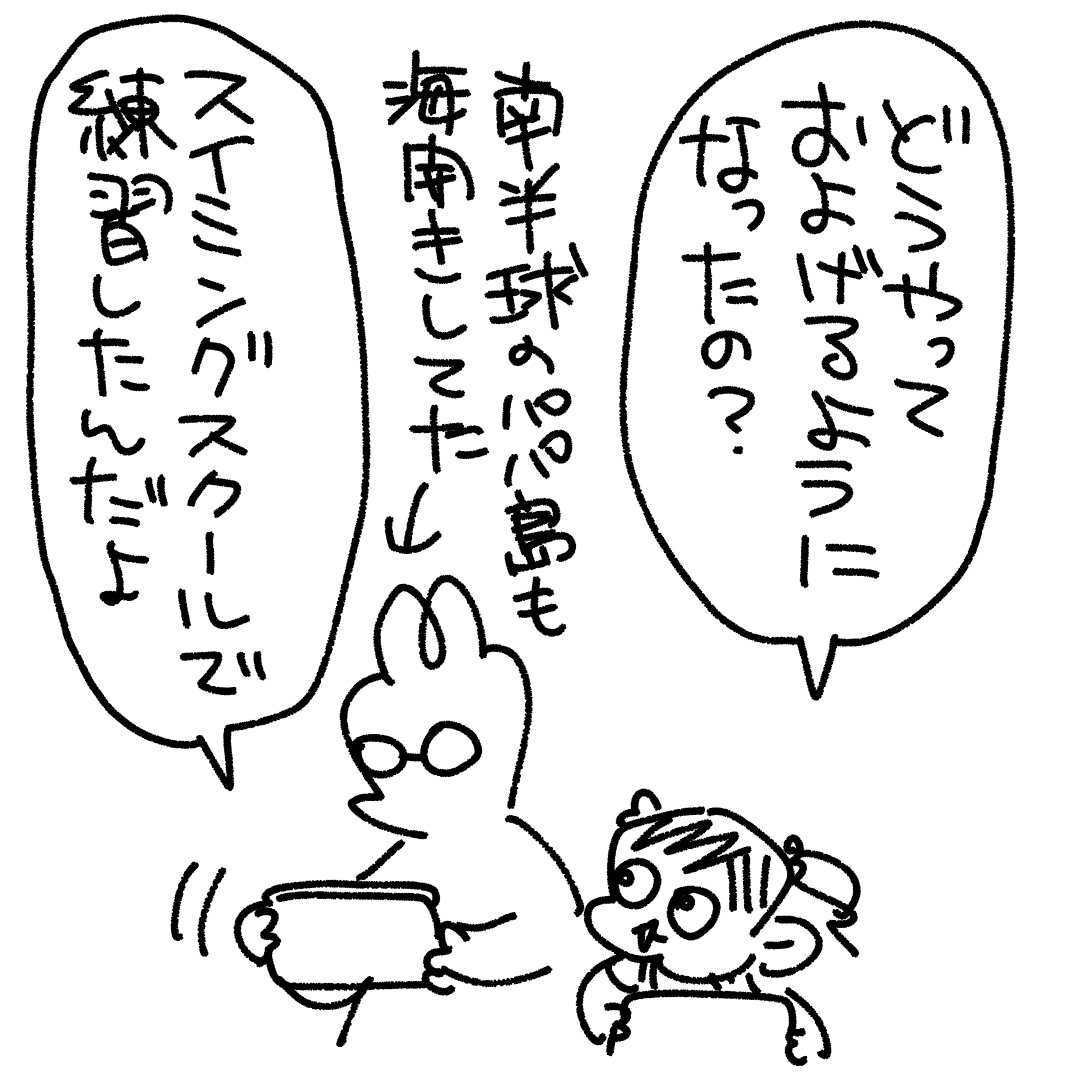 どうやって
およげるように
なったの？
南半球のパパ島も
海開きしてた
スイミングスクールで
練習したんだよ